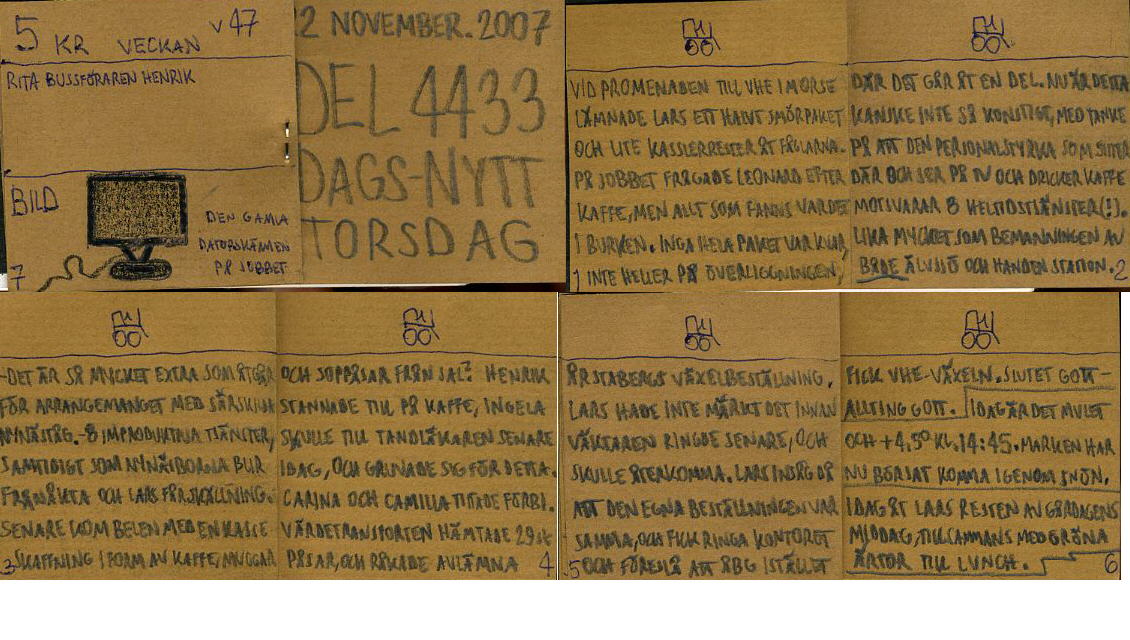 5 KR VECKAN V 47
RITA BUSSFÖRAREN HENRIK
BILD
DEN GAMLA
DATORSKÄRMEN
PÅ JOBBET
7
2 NOVEMBER. 2007
DEL 4433
DAGS-NYTT
TORSDAG
VID PROMENADEN TILL VHE I MORSE
LÄMNADE LARS ETT HALVT SMÖRPAKET
OCH LITE KASSLERRESTER ÅT FÅGLARNA.
PÅ JOBBET FRÅGADE LEONARD EFTER
KAFFE, MEN ALLT SOM FANNS VAR DET
I BURKEN. INGA HELA PAKET VAR KVAR,
1 INTE HELLER PÅ ÖVERLIGGNINGEN,
DÄR DET GÅR ÅT EN DEL. NU ÄR DETTA
KANSKE INTE SÅ KONSTIGT, MED TANKE
PÅ ATT DEN PERSONALSTYRKA SOM SITTER
DÄR OCH SER PÅ TV OCH DRICKER KAFFE
MOTIVARAR 8 HELTIDSTJÄNSTER(!).
LIKA MYCKET SOM BEMANNINGEN AV
BÅDE ÄLVSJÖ OCH HANDEN STATION. 2
-DET ÄR SÅ MYCKET EXTRA SOM ÅTGÅR
FÖR ARRANGEMANGET MED SÄRSKILDA
NYNÄSTÅG. -8 IMPRODUKTIVA TJÄNSTER,
SAMTIDIGT SOM NYNÄSBORNA BLIR
FRÅNÅKTA OCH LARS FÅR SKÄLLNING.
SENARE KOM BELEN MED EN KASSE
3 SKAFFNING I FORM AV KAFFE, MUGGAR
OCH SOPPÅSAR FRÅN SAL? HENRIK
STANNADE TILL PÅ KAFFE, INGELA
SKULLE TILL TANDLÄKAREN SENARE
IDAG, OCH GRUVADE SIG FÖR DETTA.
CARINA OCH CAMILLA TITTADE FÖRBI.
VÄRDETRANSPORTEN HÄMTADE 29 ST
PÅSAR, OCH RÅKADE AVLÄMNA 4
ÅRSTABERGS VÄXELBESTÄLLNING.
LARS HADE INTE MÄRKT DET INNAN
VÄKTAREN RINGDE SENARE, OCH
SKULLE ÅTERKOMMA. LARS INSÅG DÅ
ATT DEN EGNA BESTÄLLNINGEN VAR
SAMMA, OCH FICK RINGA KONTORET
5 OCH FÖRESLÅ ATT ÅBG ISTÄLLET
FICK VHE-VÄXELN. SLUTET GOTT-
ALLTING GOTT. IDAG ÄR DET MULET
OCH +4,5° KL. 14:45. MARKEN HAR
NU BÖRJAT KOMMA IGENOM SNÖN.
IDAG ÅT LARS RESTEN AV GÅRDAGENS
MIDDAG, TILLSAMMANS MED GRÖNA
ÄRTOR TILL LUNCH. 6